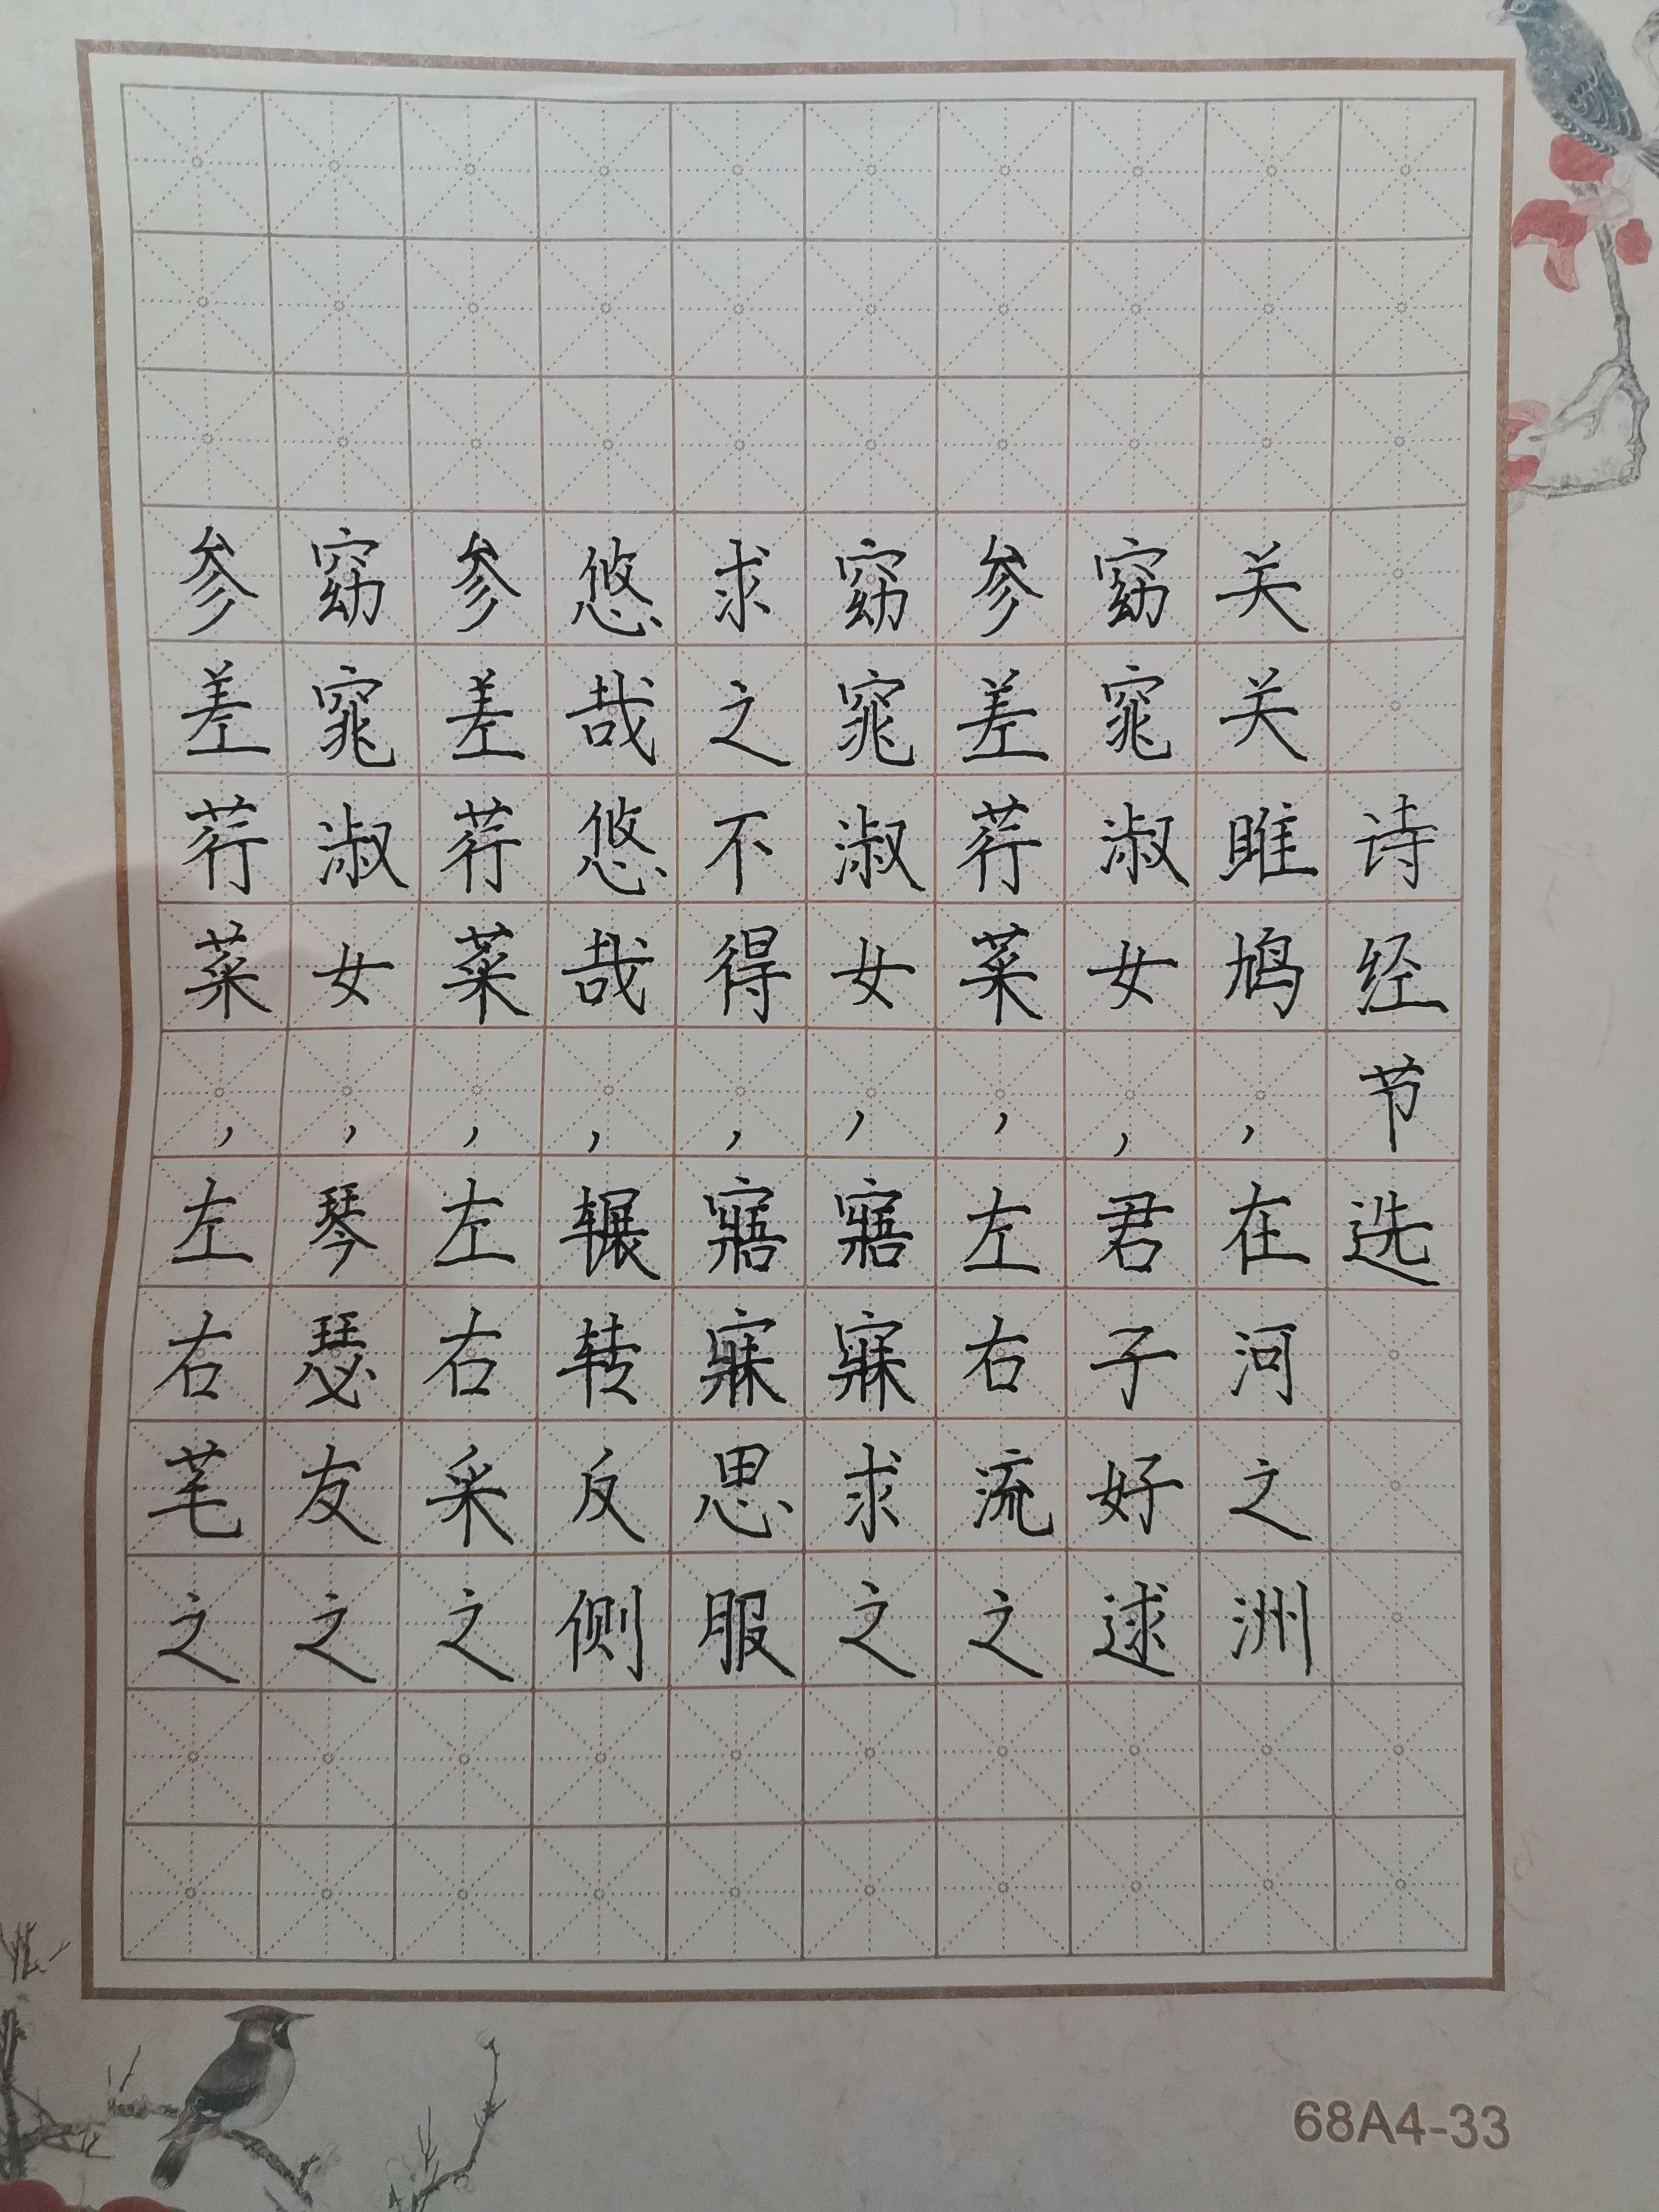 诗经节选
关关雎鸠,在河之洲
窈窕淑女,君子好逑
参差荇菜,左右流之
窈窕淑女,寤寐求之
求之不得,寤寐思服
悠哉悠哉,辗转反侧
参差荇菜,左右采之
窈窕淑女,琴瑟友之
参差荇菜,左右芼之
68A4-33